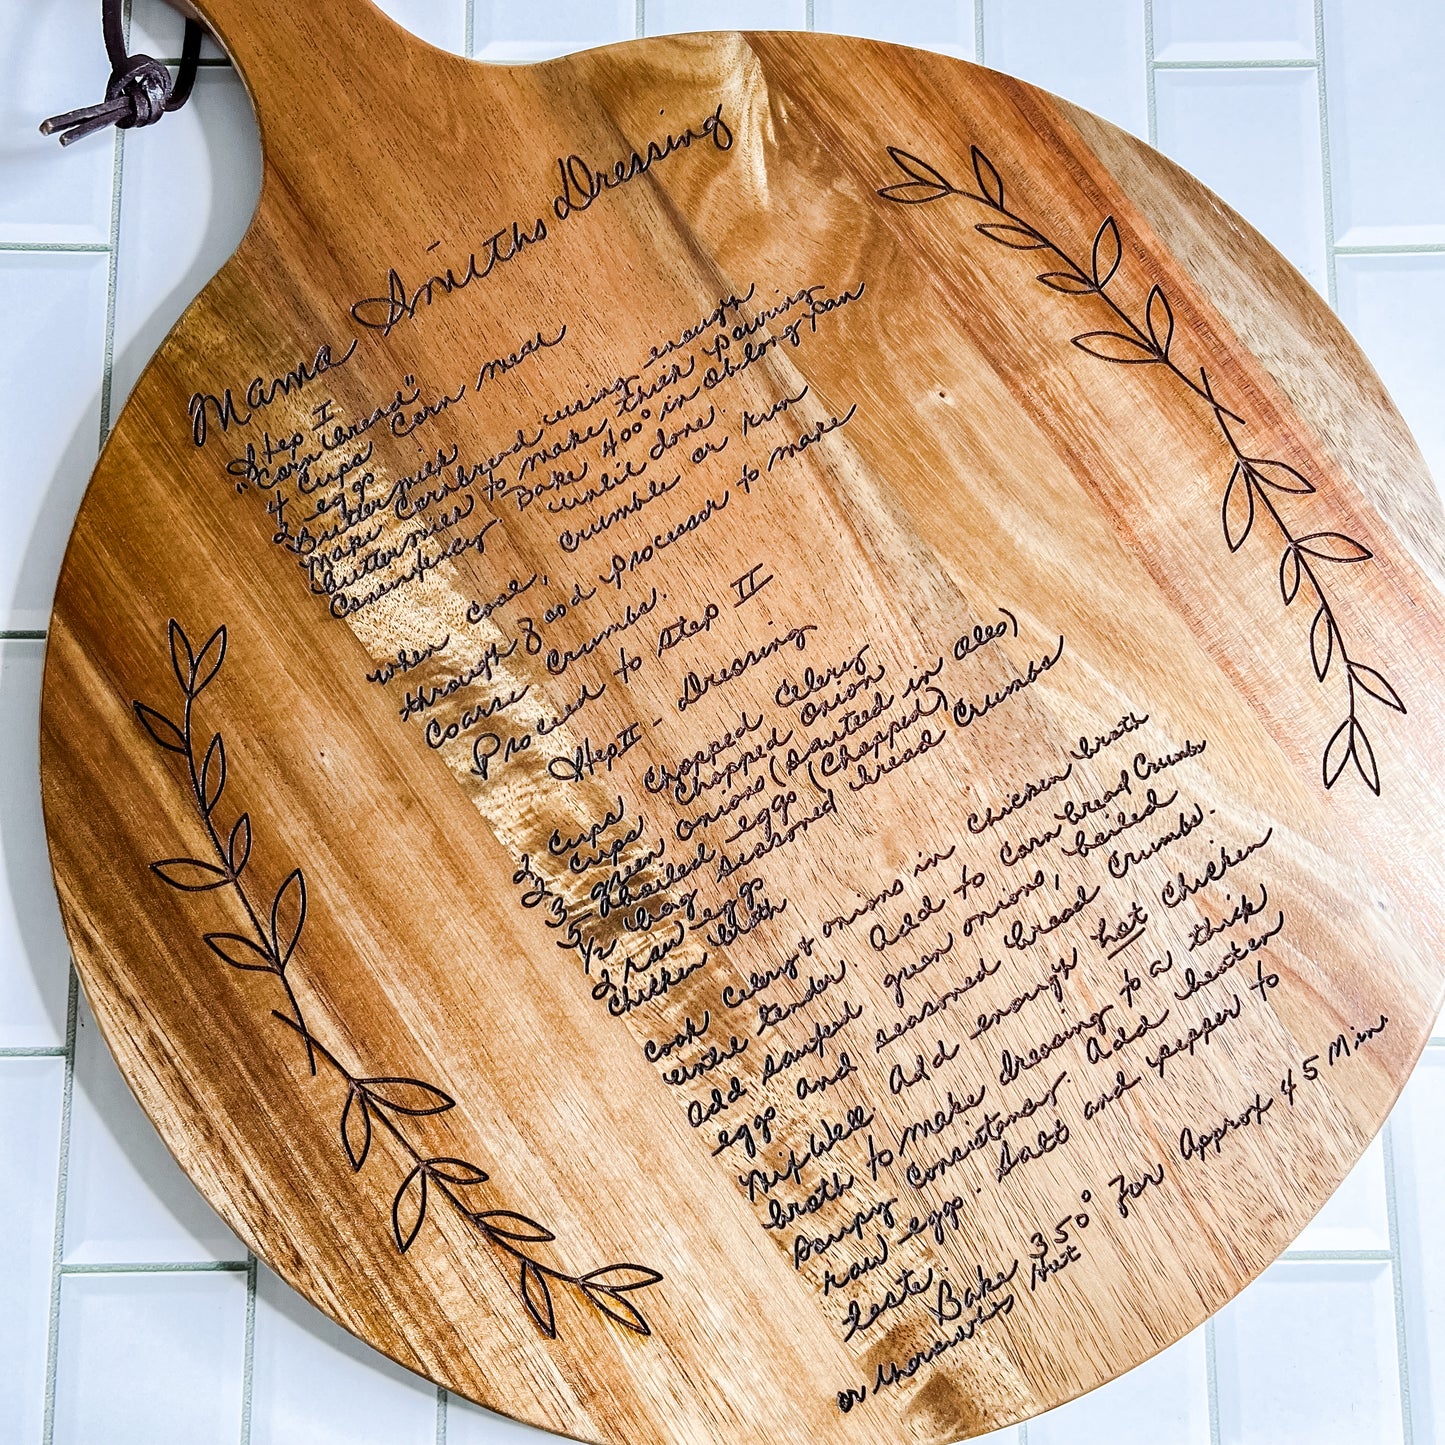 Mama Smiths Dressing
Step I
"Cornbread"
4 Cups Corn meal
2 eggs
Buttermilk
Make Cornbread using enough
buttermilk to make thick pouring
Consistency. Bake 400° in Oblong pan
until done.
when cool, crumble or run
through food processor to make
coarse crumbs.
Proceed to Step II
Step II - Dressing
2 cups chopped Celery
2 cups chopped Onion
3 green onions (sauteed in oleo)
5 boiled eggs (chopped)
1/2 bag seasoned bread crumbs
2 raw eggs
chicken broth
Cook celery & onions in chicken broth
until tender. Add to cornbread crumbs
add sauteed green onions, boiled
eggs and seasoned bread crumbs.
Mix Well. Add enough hot chicken
broth to make dressing to a thick
soupy consistancy. Add beaten
raw eggs. Salt and pepper to
taste.
Bake 350° For Approx 45 Min.
or